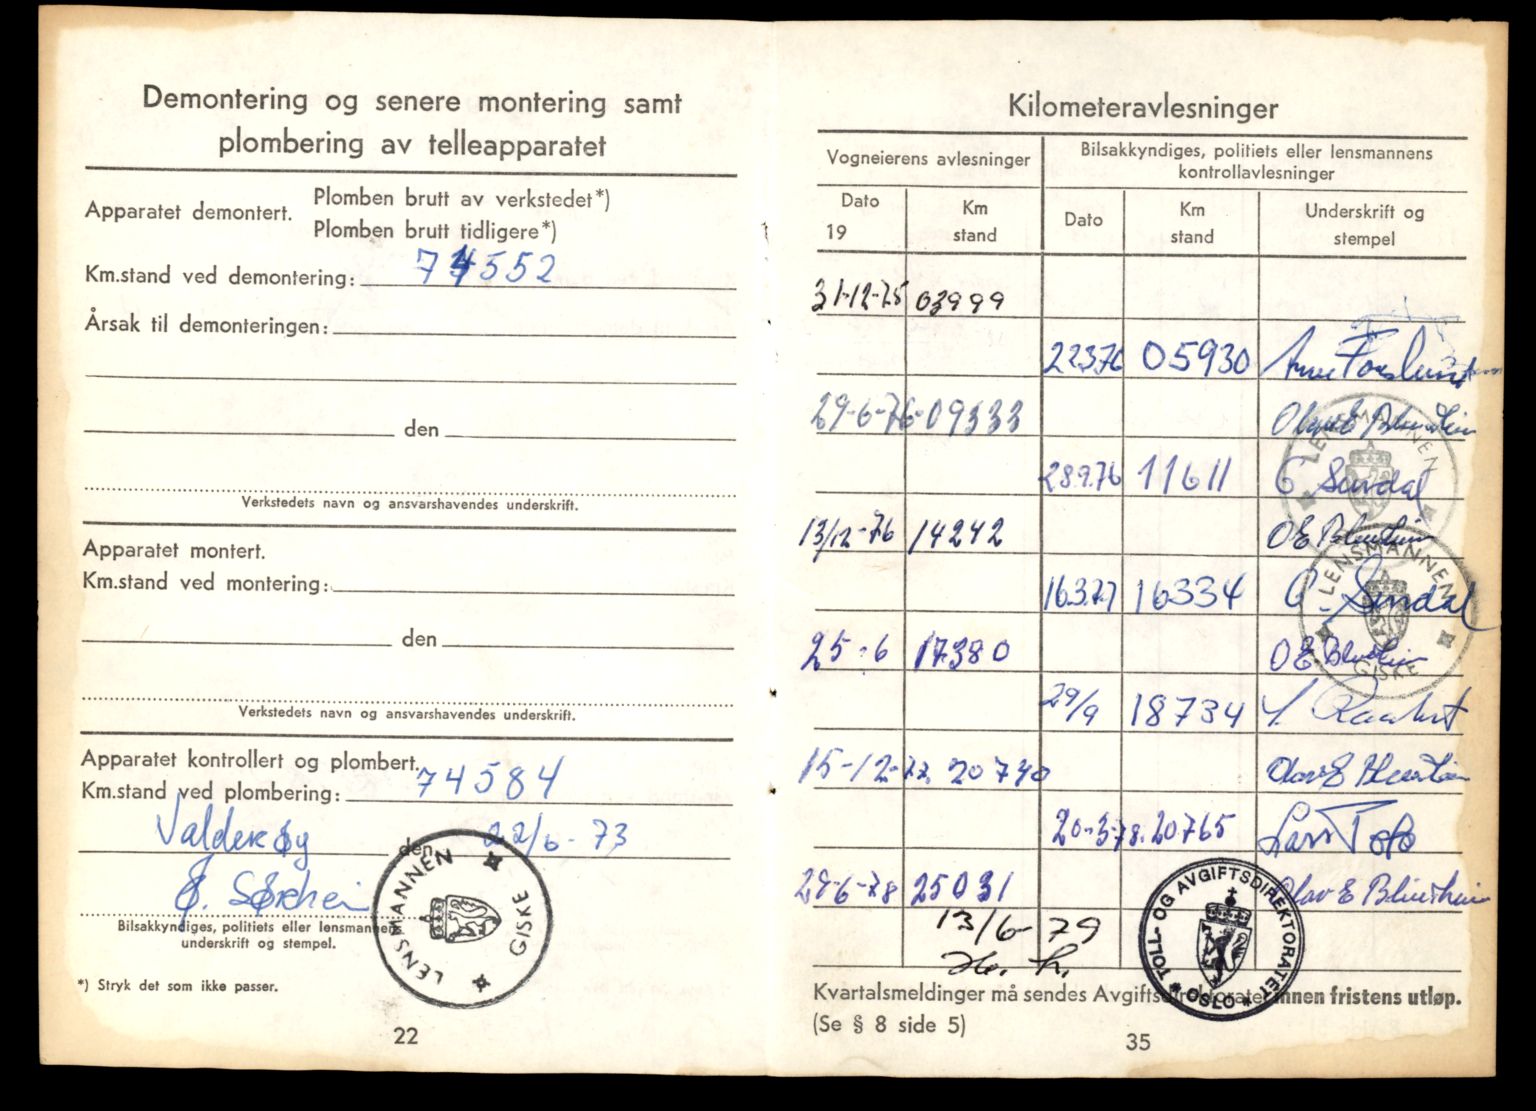 Demontering og senere montering samt
plombering av telleapparatet
Apparatet demontert. Plomben brutt av verkstedet*)
Plomben brutt tidligere*)
Km.stand ved demontering: 74552
Årsak til demonteringen:
den
Verkstedets navn og ansvarshavendes underskrift.
Apparatet montert.
Km.stand ved montering:
den
Verkstedets navn og ansvarshavendes underskrift.
Apparatet kontrollert og plombert.
Km.stand ved plombering: 74584
Valderøy den 22/6-73
Bilsakkyndiges, politiets eller lensmannens
underskrift og stempel.
LENSMANNEN GISKE
*) Stryk det som ikke passer.
22
Kilometeravlesninger
Vogneierens avlesninger
Bilsakkyndiges, politiets eller lensmannens
kontrollavlesninger
Dato
19
Km
stand
Dato
Km
stand
Underskrift og
stempel
31-12-75 03999
22376 05930 Arne Forslund
29-6-76 09333
28.9.76 11611 Sundal
13/12-76 14242 O E Blindheim
16.3.77 16334 Sundal
25-6 17380 O E Blindheim
29/9 18734
15-12-77 20740 Olav E Blindheim
20-3-78 20765
28-6-78 25031 Olav E Blindheim
13/6-79
LENSMANNEN
LENSMANNEN GISKE
TOLL- OG AVGIFTSDIREKTORATET OSLO
Kvartalsmeldinger må sendes Avgiftsdirektoratet innen fristens utløp.
(Se § 8 side 5)
35